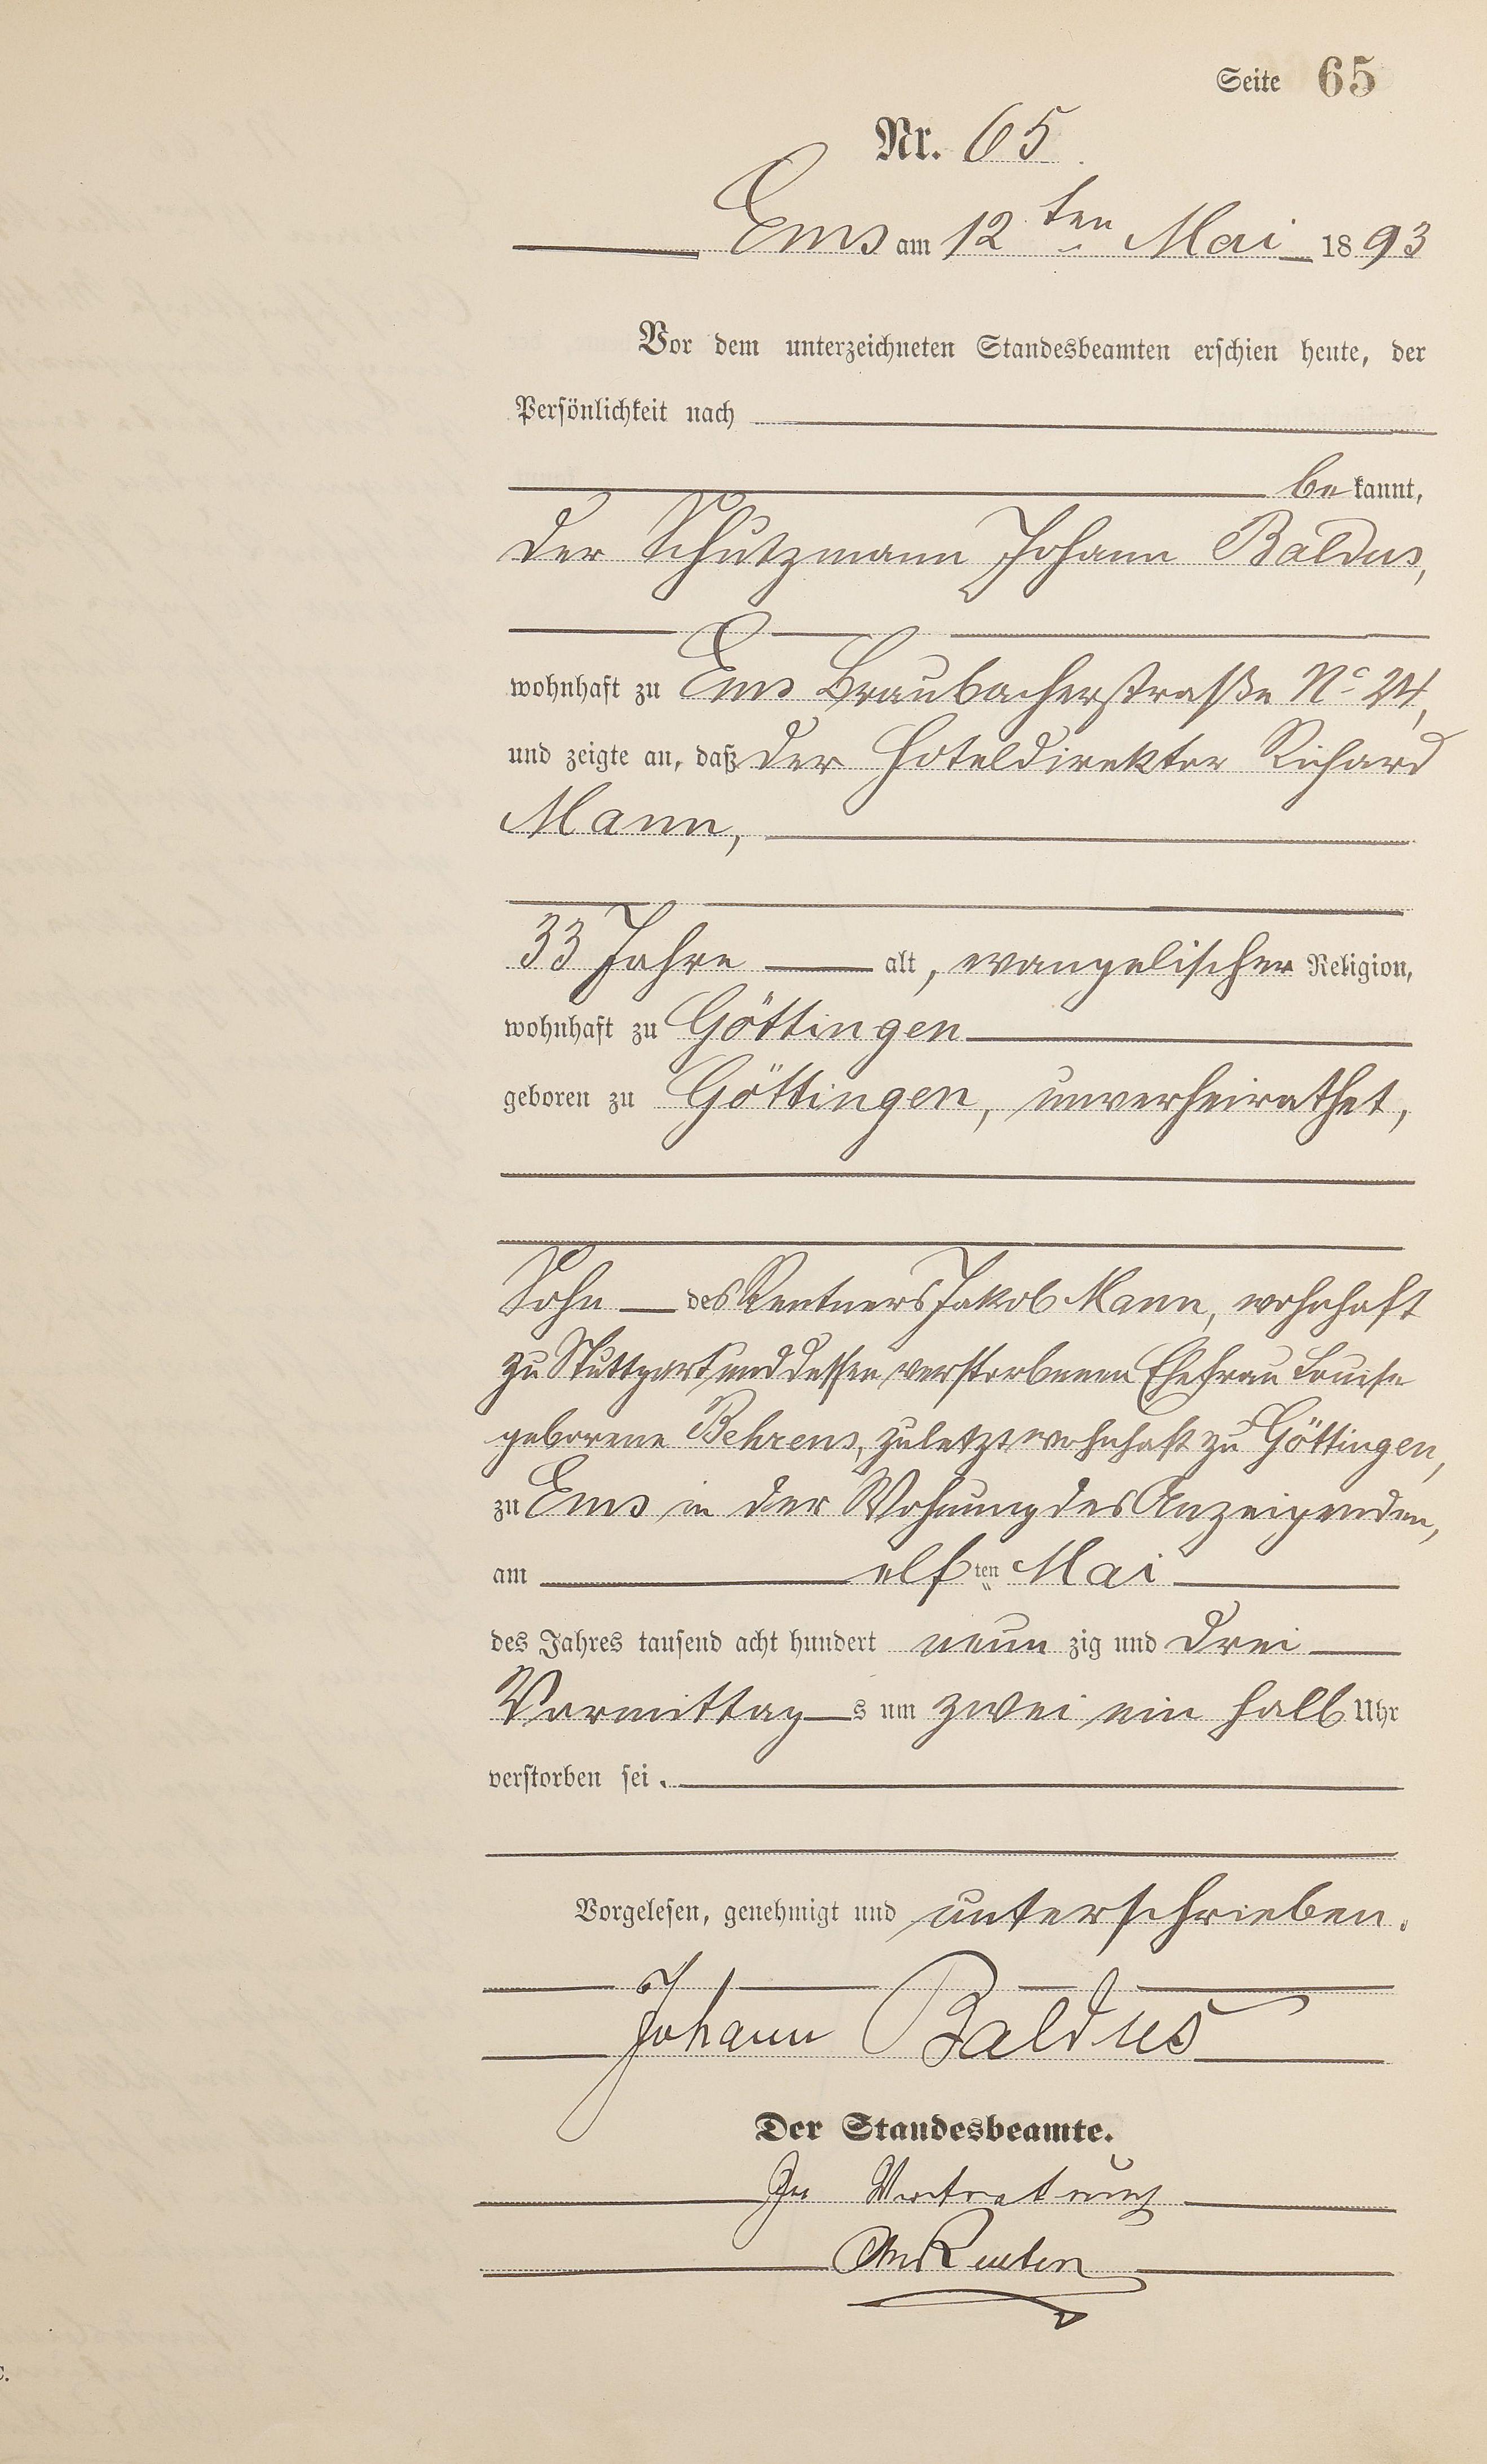 Seite 65
Nr. 65
Ems am 12ten Mai 1893
Vor dem unterzeichneten Standesbeamten erschien heute, der
Persönlichkeit nach
bekannt,
der Schutzmann Johann Baldus,
wohnhaft zu Ems Braubacherstraße No 24,
und zeigte an, daß der Hoteldirektor Richard
Mann,
33 Jahre alt, evangelischer Religion,
wohnhaft zu Göttingen
geboren zu Göttingen, unverheirathet,
Sohn des Rentners Jakob Mann, wohnhaft
zu Stuttgart und dessen verstorbenen Ehefrau Louise
geborene Behrens, zuletzt wohnhaft zu Göttingen,
zu Ems in der Wohnung des Anzeigenden,
am elften Mai
des Jahres tausend acht hundert neunzig und drei
Vormittags um zwei ein halb Uhr
verstorben sei.
Vorgelesen, genehmigt und unterschrieben.
Johann Baldus
Der Standesbeamte.
In Vertretung